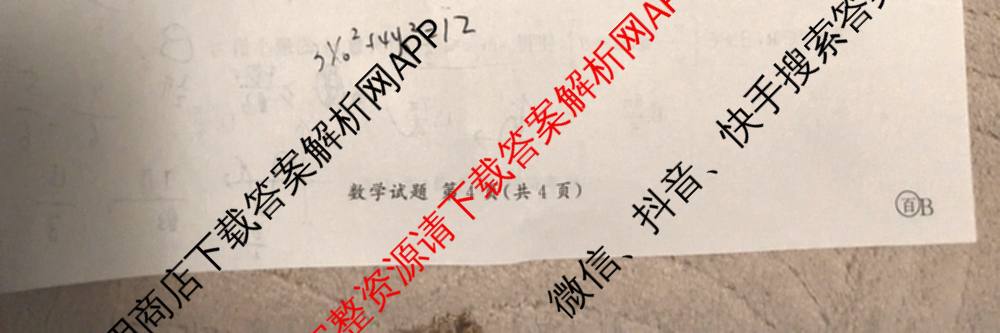 3x₀²+4y²=12
数学试题 第4页(共4页)
百B
用商店下载答案解析网APP
整资源请下载答案解析网AP
微信、抖音、快手搜索答案